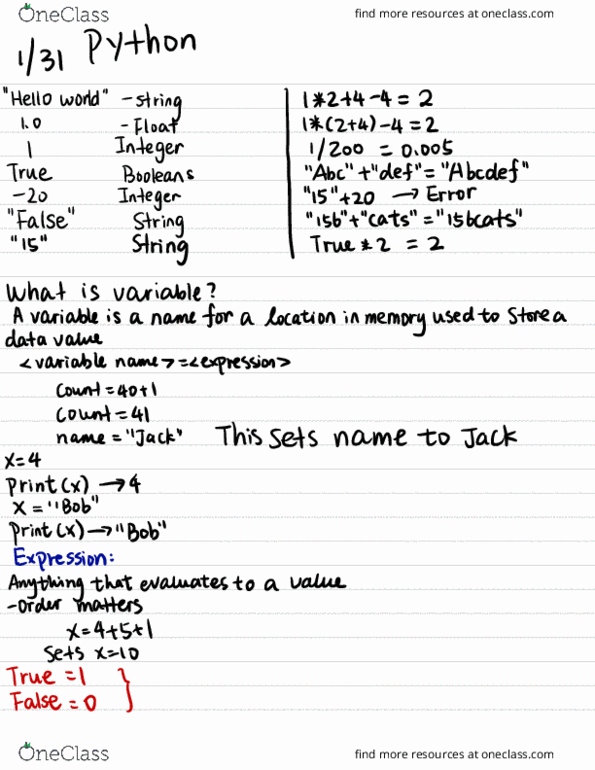 OneClass
find more resources at oneclass.com
1/31 Python
"Hello world" - string
1.0 - Float
1 Integer
True Booleans
-20 Integer
"False" String
"15" String
1*2+4-4 = 2
1*(2+4)-4 = 2
1/200 = 0.005
"Abc"+"def" = "Abcdef"
"15"+20 → Error
"15b"+"cats" = "15bcats"
True * 2 = 2
What is variable?
A variable is a name for a location in memory used to store a
data value
<variable name> = <expression>
Count = 40+1
Count = 41
name = "Jack" This sets name to Jack
x=4
Print(x) → 4
x = "Bob"
Print(x) → "Bob"
Expression:
Anything that evaluates to a value
-Order matters
x=4+5+1
sets x=10
True = 1
False = 0
OneClass
find more resources at oneclass.com